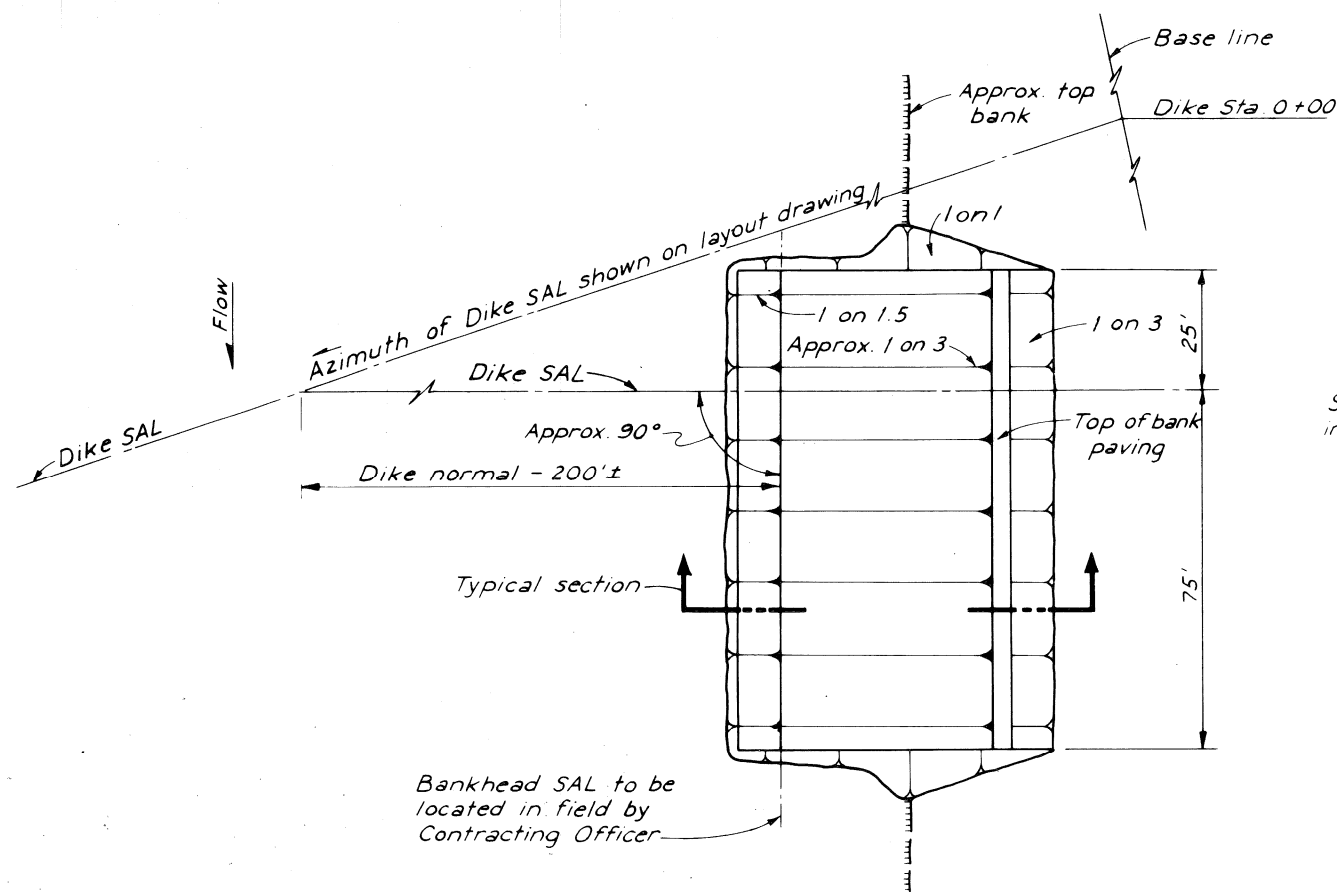 Base line
Approx. top
bank
Dike Sta. 0+00
Azimuth of Dike SAL shown on layout drawing
1 on 1
Flow
1 on 1.5
1 on 3
25'
Approx. 1 on 3
Dike SAL
Dike SAL
Approx. 90°
Top of bank
paving
Dike normal - 200'±
Typical section
75'
Bankhead SAL to be
located in field by
Contracting Officer